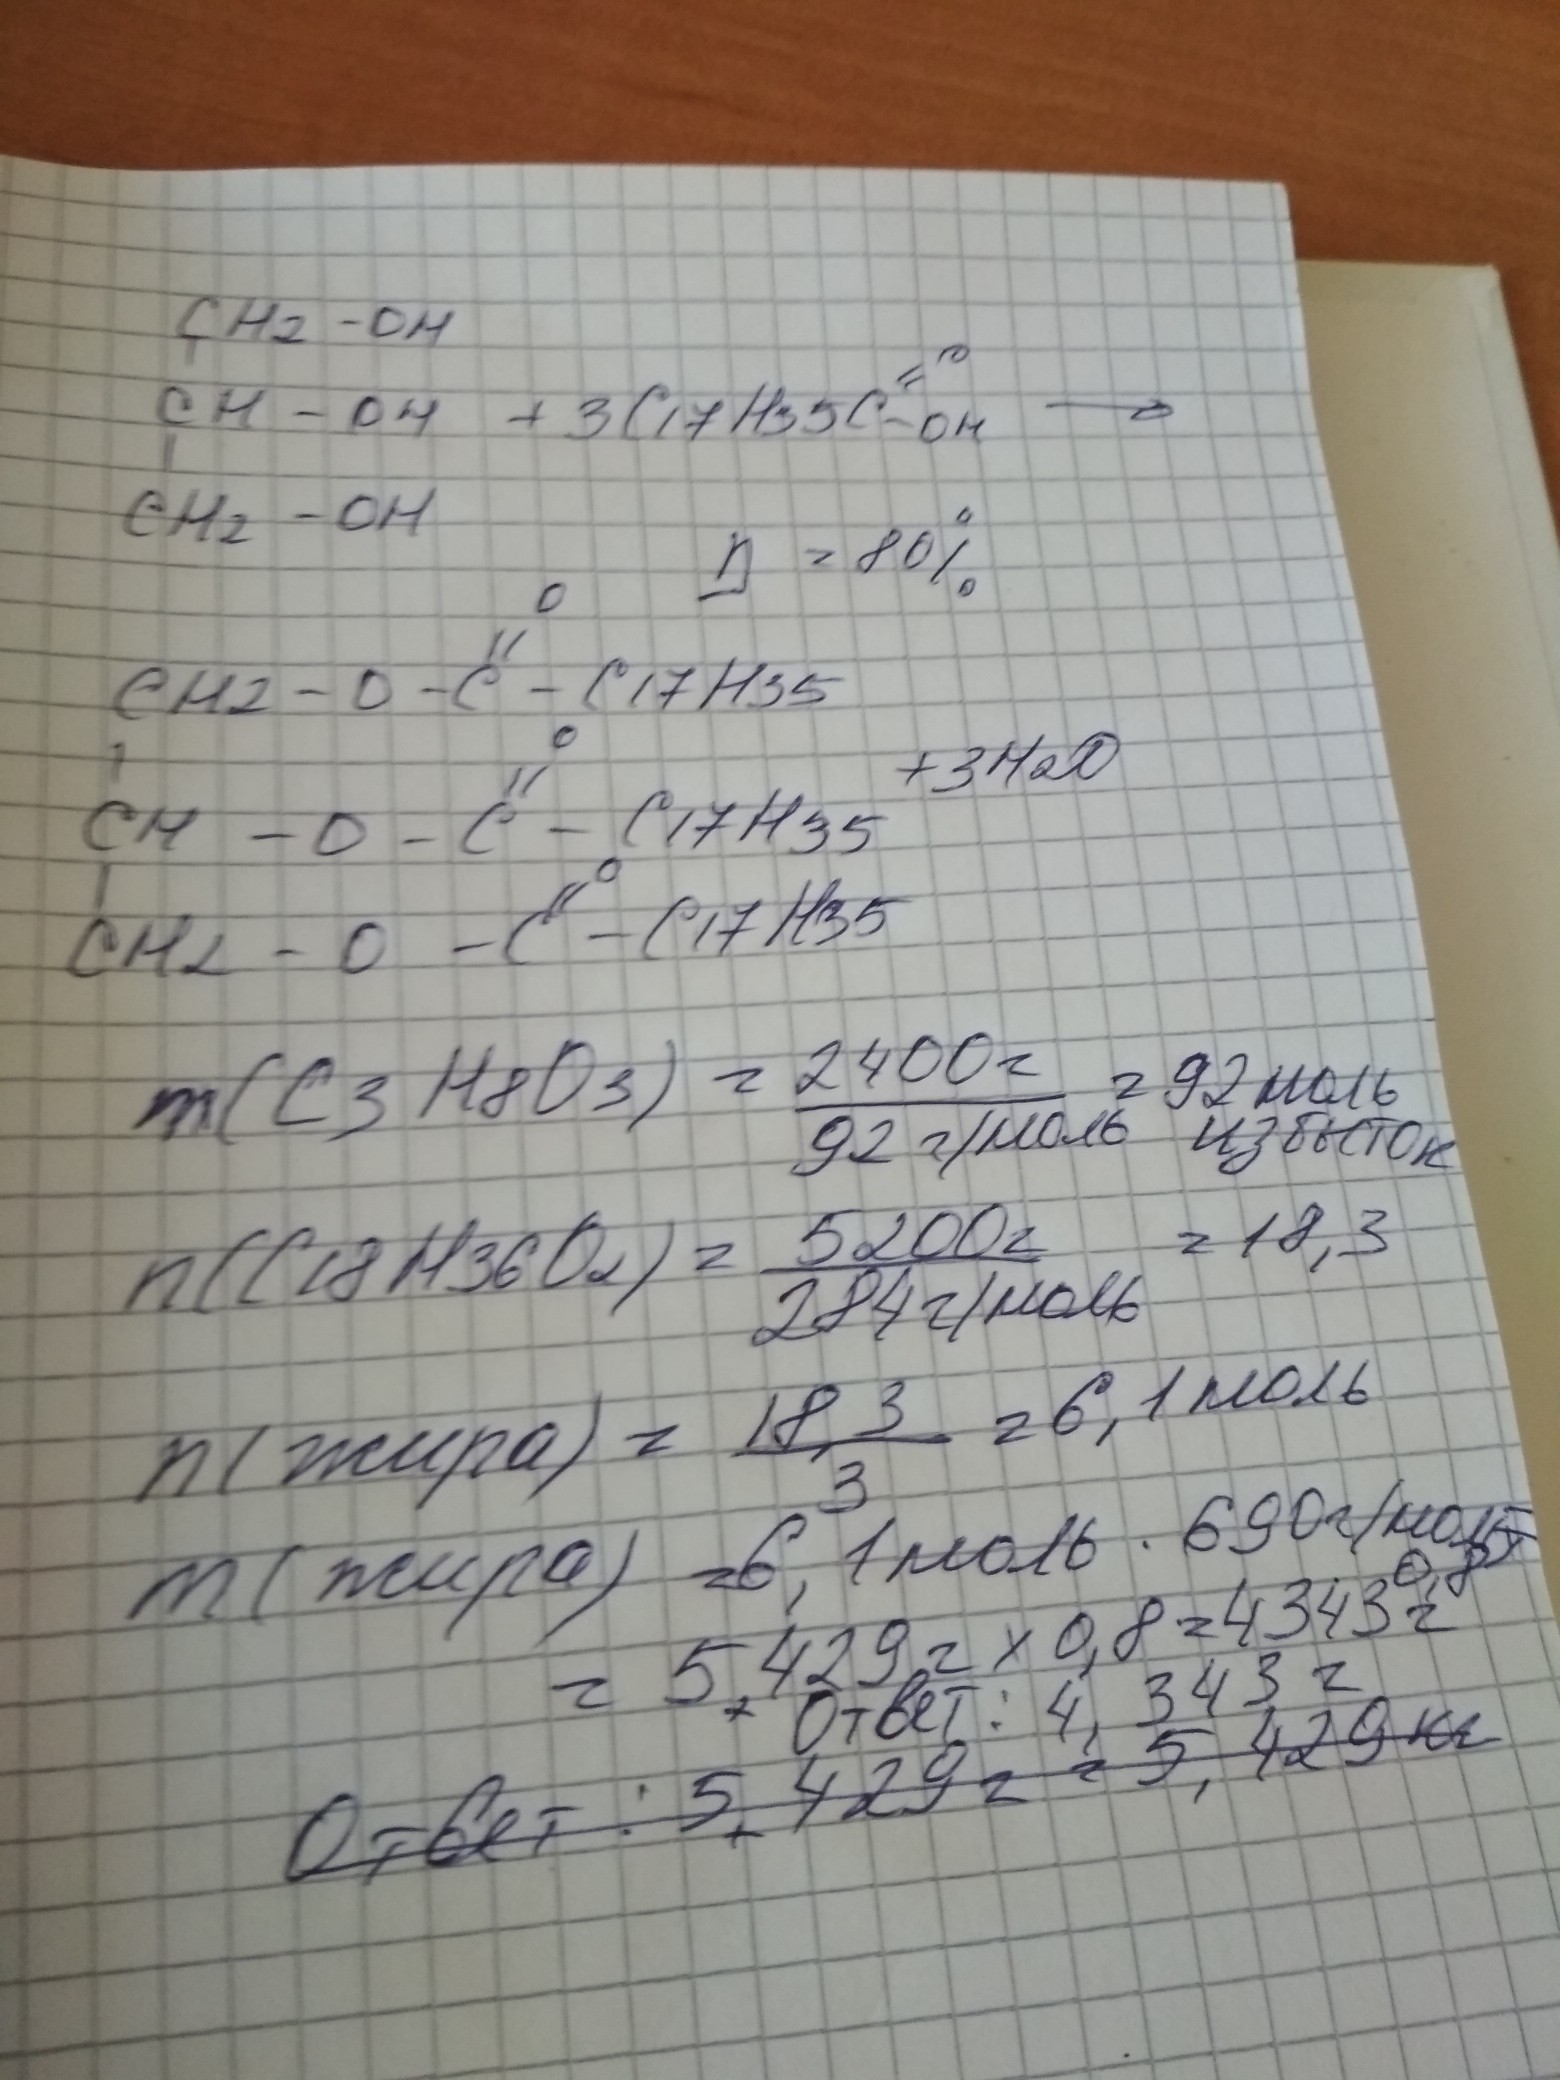 CH2 - OH
CH - OH + 3C17H35C=O-OH →
CH2 - OH
η = 80%
CH2 - O - C=O - C17H35
CH - O - C=O - C17H35 + 3H2O
CH2 - O - C=O - C17H35
m(C3H8O3) = 2400г / 92 г/моль = 92 моль избыток
n(C18H36O2) = 5200г / 284 г/моль = 18,3
n(жира) = 18,3 / 3 = 6,1 моль
m(жира) = 6,1 моль · 690 г/моль 0,8
= 5,429 г × 0,8 = 4343 г
Ответ: 4,343 г
Ответ: 5,429 г = 5,429 кг